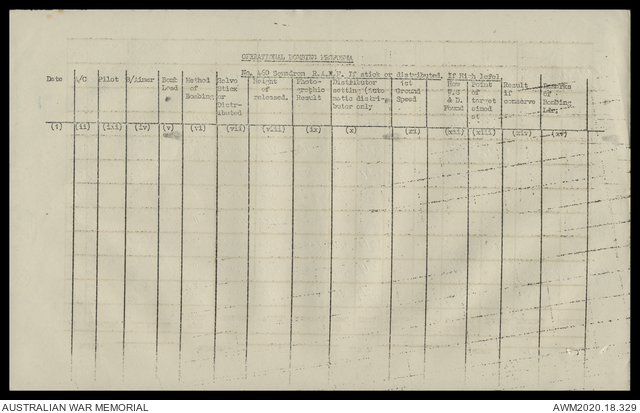 OPERATIONAL BOMBING PROFORMA
No. 460 Squadron R.A.A.F. If stick or distributed. If High level.
Date A/C Pilot B/Aimer Bomb Load Method of Bombing Salvo Stick or Distributed Height of released. Photographic Result Distributor setting (Automatic distributor only 1st Ground Speed How W.S & D. Found Point of target aimed at Result if Remarks of Bombing Ldr.
(i) (ii) (iii) (iv) (v) (vi) (vii) (viii) (ix) (x) (xi) (xii) (xiii) (xiv) (xv)
AUSTRALIAN WAR MEMORIAL AWM2020.18.329